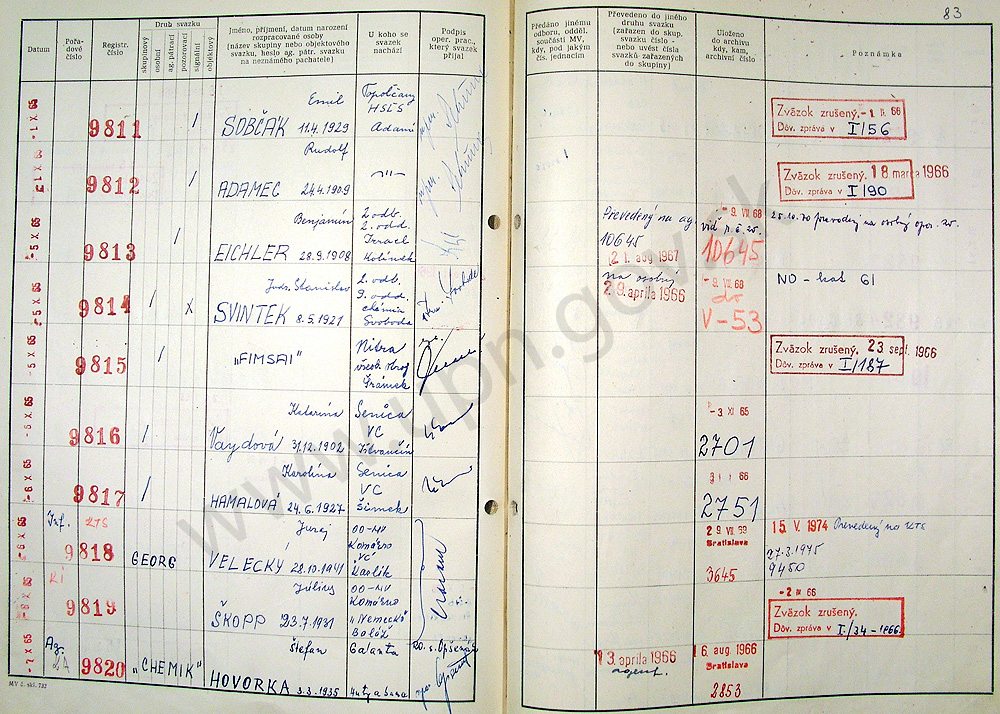 83
Datum
Pořadové číslo
Registr. číslo
Druh svazku
skupinový
osobní
ag. pátrací
pozorovací
signální
objektový
Jméno, příjmení, datum narození
rozpracované osoby
(název skupiny nebo objektového
svazku, heslo ag. pátr. svazku
na neznámého pachatele)
U koho se
svazek
nachází
Podpis
oper. prac.,
který svazek
přijal
Předáno jinému
odboru, odděl.
součásti MV,
kdy, pod jakým
čís. jednacím
Převedeno do jiného
druhu svazku
(zařazen do skup.
svazku číslo -
nebo uvést čísla
svazků zařazených
do skupiny)
Uloženo
do archivu
kdy, kam,
archivní číslo
Poznámka
-1 X 65
9811
/
Emil
SOBČAK 11.4.1929
Topolčany
HSLS
Adami
Zväzok zrušený. -1 66
Dôv. zpráva v I/56
-1 X 65
9812
/
Rudolf
ADAMEC 24.4.1909
-"-
Zväzok zrušený. 18 marca 1966
Dôv. zpráva v I/90
-5 X 65
9813
/
Benjamín
EICHLER 28.9.1908
2 odb.
2. odd.
Izrael
Kolínek
Prevedený na ag.
10645
2 1. aug 1967
- 9. VII. 68
viď
10645
25.10.70 prevedený na osobný
-5 X 65
9814
/ X
Juds. Stanislav
SVINTEK 8.5.1921
2. odb.
9. odd.
chemia
Svoboda
na osobný
2 9. apríla 1966
- 9. VII. 68
do
V-53
NO - kat 61
-5 X 65
9815
/
"FIMSAI"
Nitra
Šrámek
Zväzok zrušený. 23 sept 1966
Dôv. zpráva v I/187
-6 X 65
9816
/
Katarína
Vaydová 31.12.1902
Senica
VC
-3 XI 65
2701
-6 X 65
9817
/
Karolína
HAMALOVÁ 24.6.1927
Senica
VC
Šimek
66
2751
-6 X 65
Inf. KTS
9818
GEORG
Juraj
VELECKÝ 28.10.1941
OO-MV
Komárno
VC
Karlik
2 9. VII. 69
Bratislava
3645
1 5. V. 1974 Prevedený na KTS
27.3.1975
9450
-6 X 65
KI
9819
Július
ŠKOPP 23.7.1931
OO-MV
Komárno
"Nemecko"
Baláž
-2 66
Zväzok zrušený.
Dôv. zpráva v I./34-1966
-7 X 65
Ag.
9820
"CHEMIK"
Štefan
HOVORKA 3.3.1935
Galanta
1 3. apríla 1966
agent.
1 6. aug. 1966
Bratislava
2853
MV č. skl. 732
www.upn.gov.sk